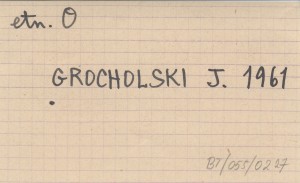 etn. O
GROCHOLSKI J. 1961
BT/055/0227